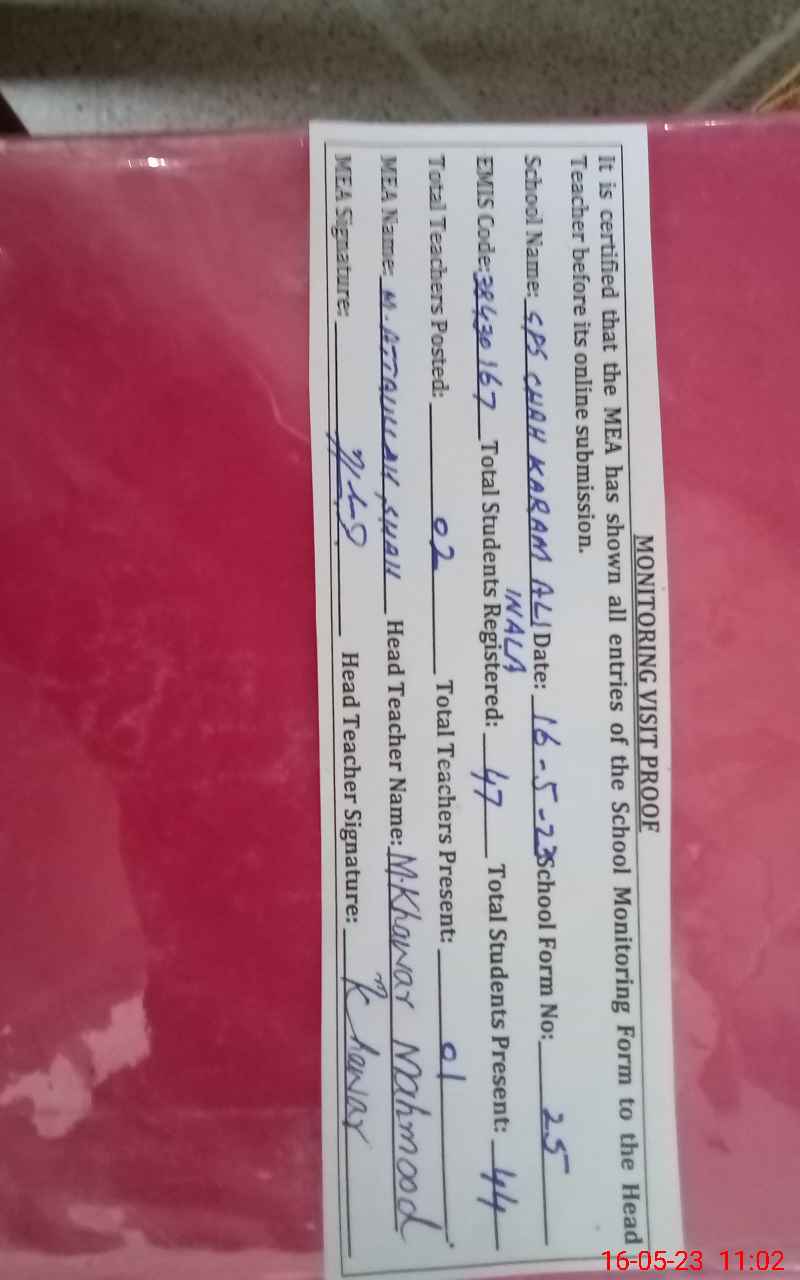 MONITORING VISIT PROOF
It is certified that the MEA has shown all entries of the School Monitoring Form to the Head
Teacher before its online submission.
School Name: GPS CHAH KARAM ALI Date: 16-5-23 School Form No: 25
INALA
EMIS Code: 38430167 Total Students Registered: 47 Total Students Present: 44
Total Teachers Posted: 02 Total Teachers Present: 01
MEA Name: M. ATTAULLAH SHAH Head Teacher Name: M. Khawar Mahmood
MEA Signature: Head Teacher Signature: Khawar
16-05-23 11:02